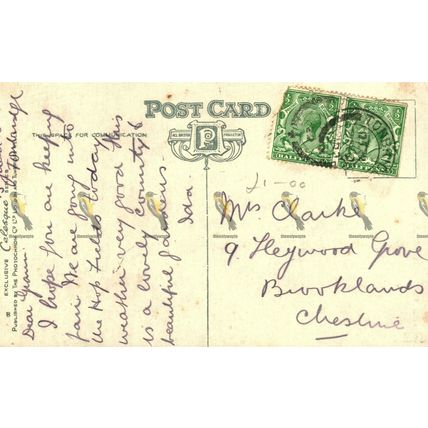 POST CARD
ALL BRITISH PRODUCTION
THIS SPACE FOR COMMUNICATION
Dear
I hope you are keeping
fair. We are going into
the Hop Fields today
weather very good This
is a lovely County &
beautiful gardens
Ida.
EXCLUSIVE Celesque SERIES
PUBLISHED BY THE PHOTOCHROM Co LTD
8
21-00
Mrs Clarke
9 Heywood Grove
Brooklands
Cheshire
HALFPENNY
HALFPENNY